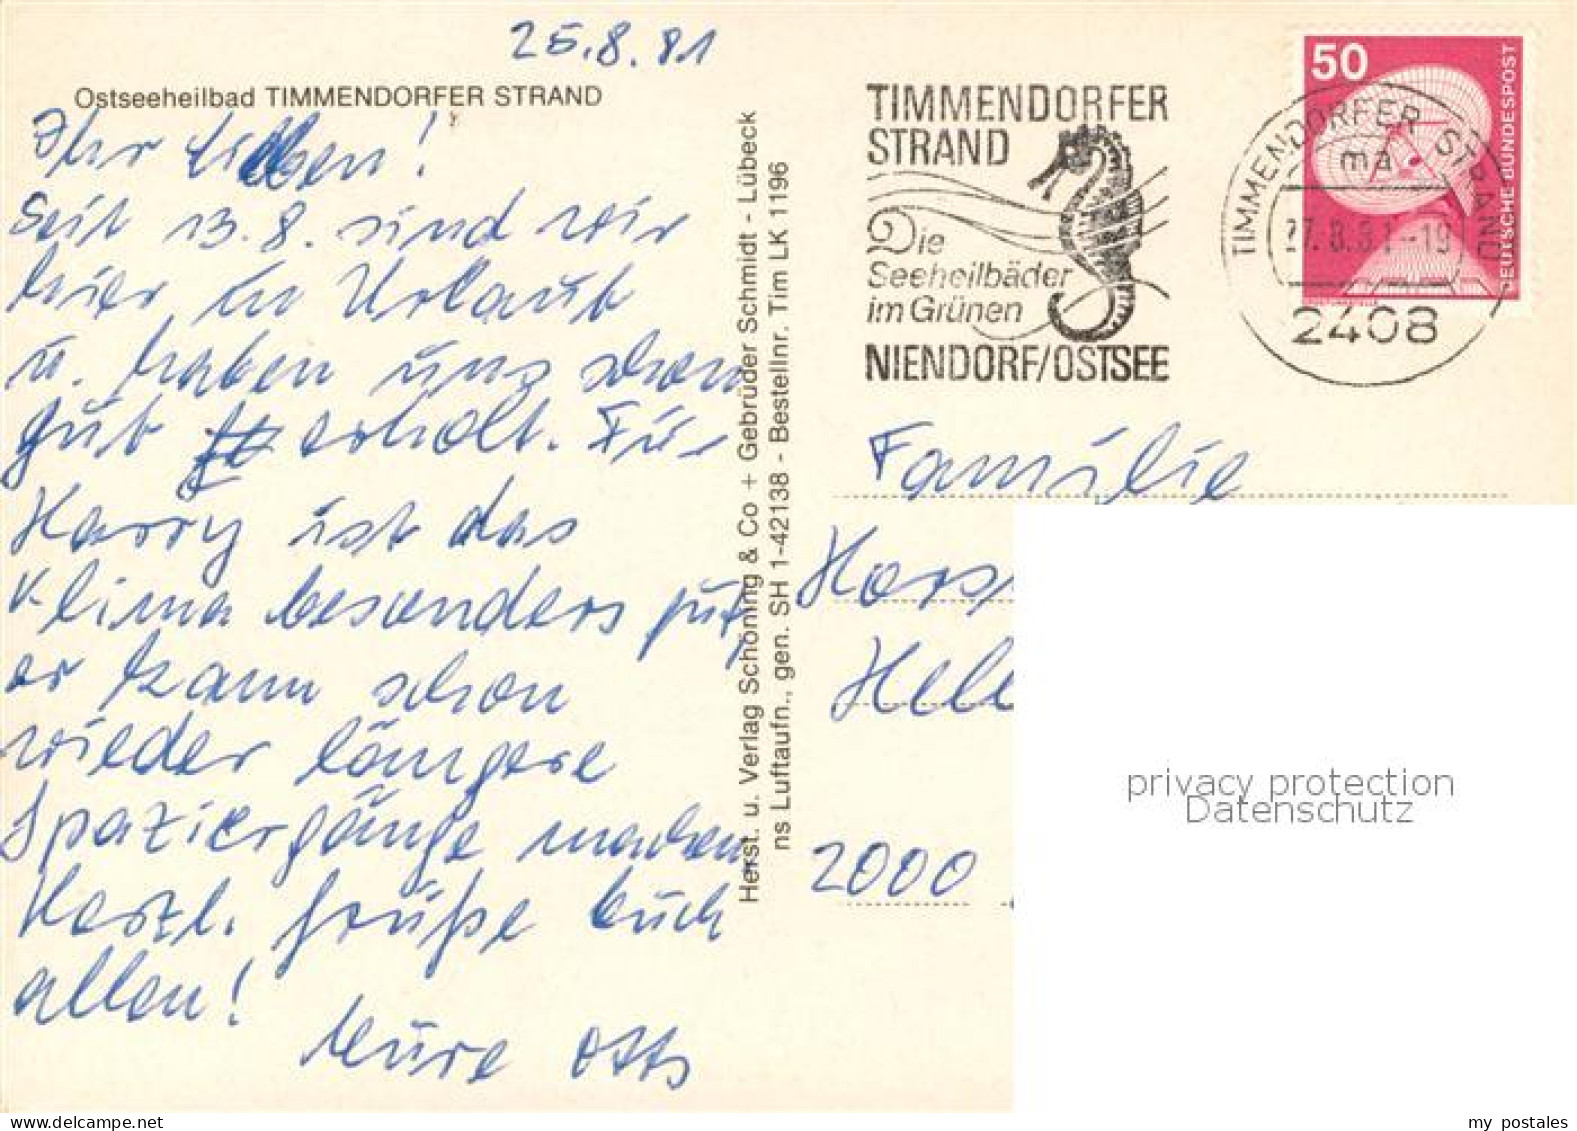 25.8.81
Ostseeheilbad TIMMENDORFER STRAND
Ihr Lieben!
Seit 13.8. sind wir
hier in Urlaub
u. haben uns schon
gut erholt. Für
Harry ist das
Klima besonders gut,
er kann schon
wieder längere
Spaziergänge machen
Herzl. Grüße Euch
allen!
Eure Otts
Herst. u. Verlag Schöning & Co + Gebrüder Schmidt - Lübeck
ns Luftaufn., gen. SH 1-42138 - Bestellnr. Tim LK 1196
TIMMENDORFER
STRAND
Die
Seeheilbäder
im Grünen
NIENDORF/OSTSEE
50
DEUTSCHE BUNDESPOST
TIMMENDORFER STRAND
ma
27.8.81-19
2408
Familie
Hors
Hele
2000
privacy protection
Datenschutz
my postales
www.delcampe.net